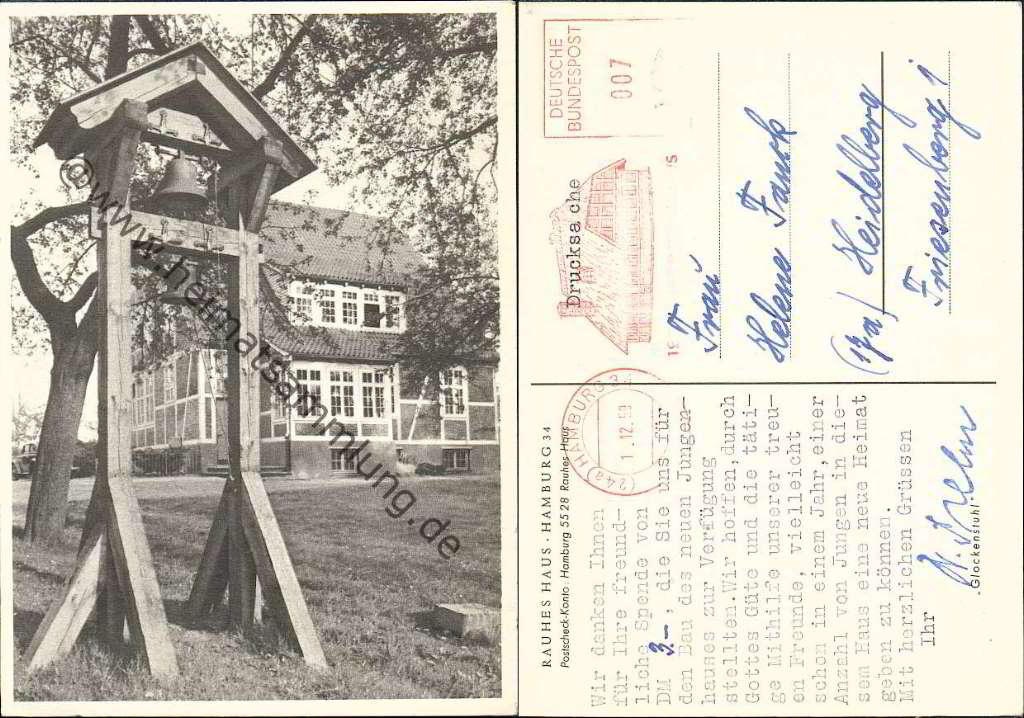 © www.heimatsammlung.de
RAUHES HAUS · HAMBURG 34
Postscheck-Konto: Hamburg 55 28 Rauhes Haus
Wir danken Ihnen
für Ihre freund-
liche Spende von
DM 3.-, die Sie uns für
den Bau des neuen Jungen-
hauses zur Verfügung
stellten. Wir hoffen, durch
Gottes Güte und die täti-
ge Mithilfe unserer treu-
en Freunde, vielleicht
schon in einem Jahr, einer
Anzahl von Jungen in die-
sem Haus eine neue Heimat
geben zu können.
Mit herzlichen Grüssen
Ihr
„Glockenstuhl“
DEUTSCHE
BUNDESPOST
007
Drucksache
(24a) HAMBURG 34
Frau
Helene Fauck
(17a) Heidelberg
Friesenberg 1